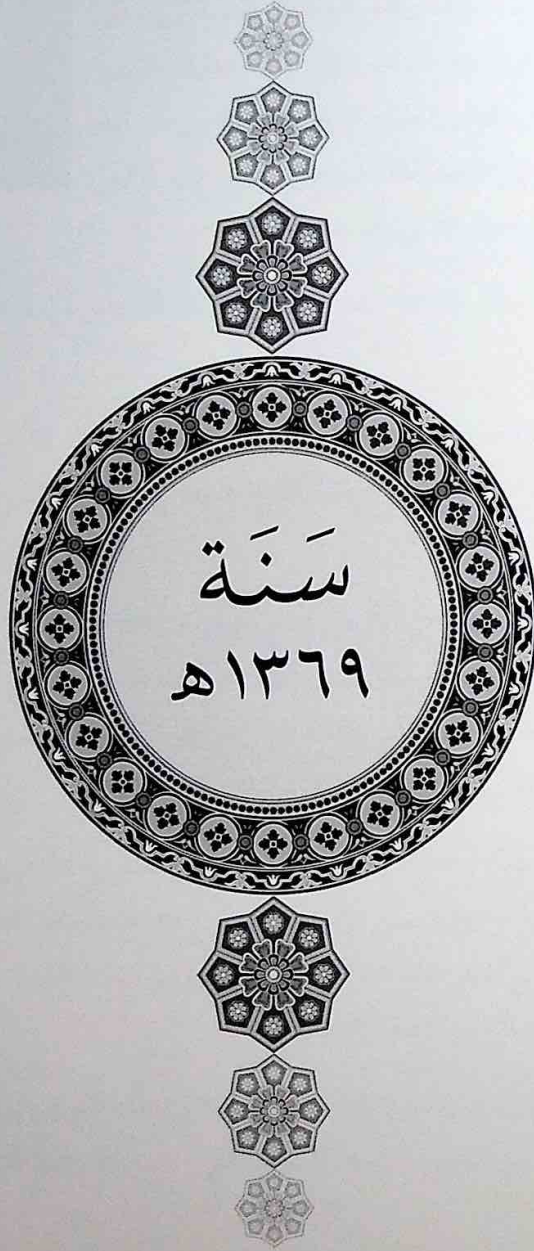 سَنَة
١٣٦٩هـ